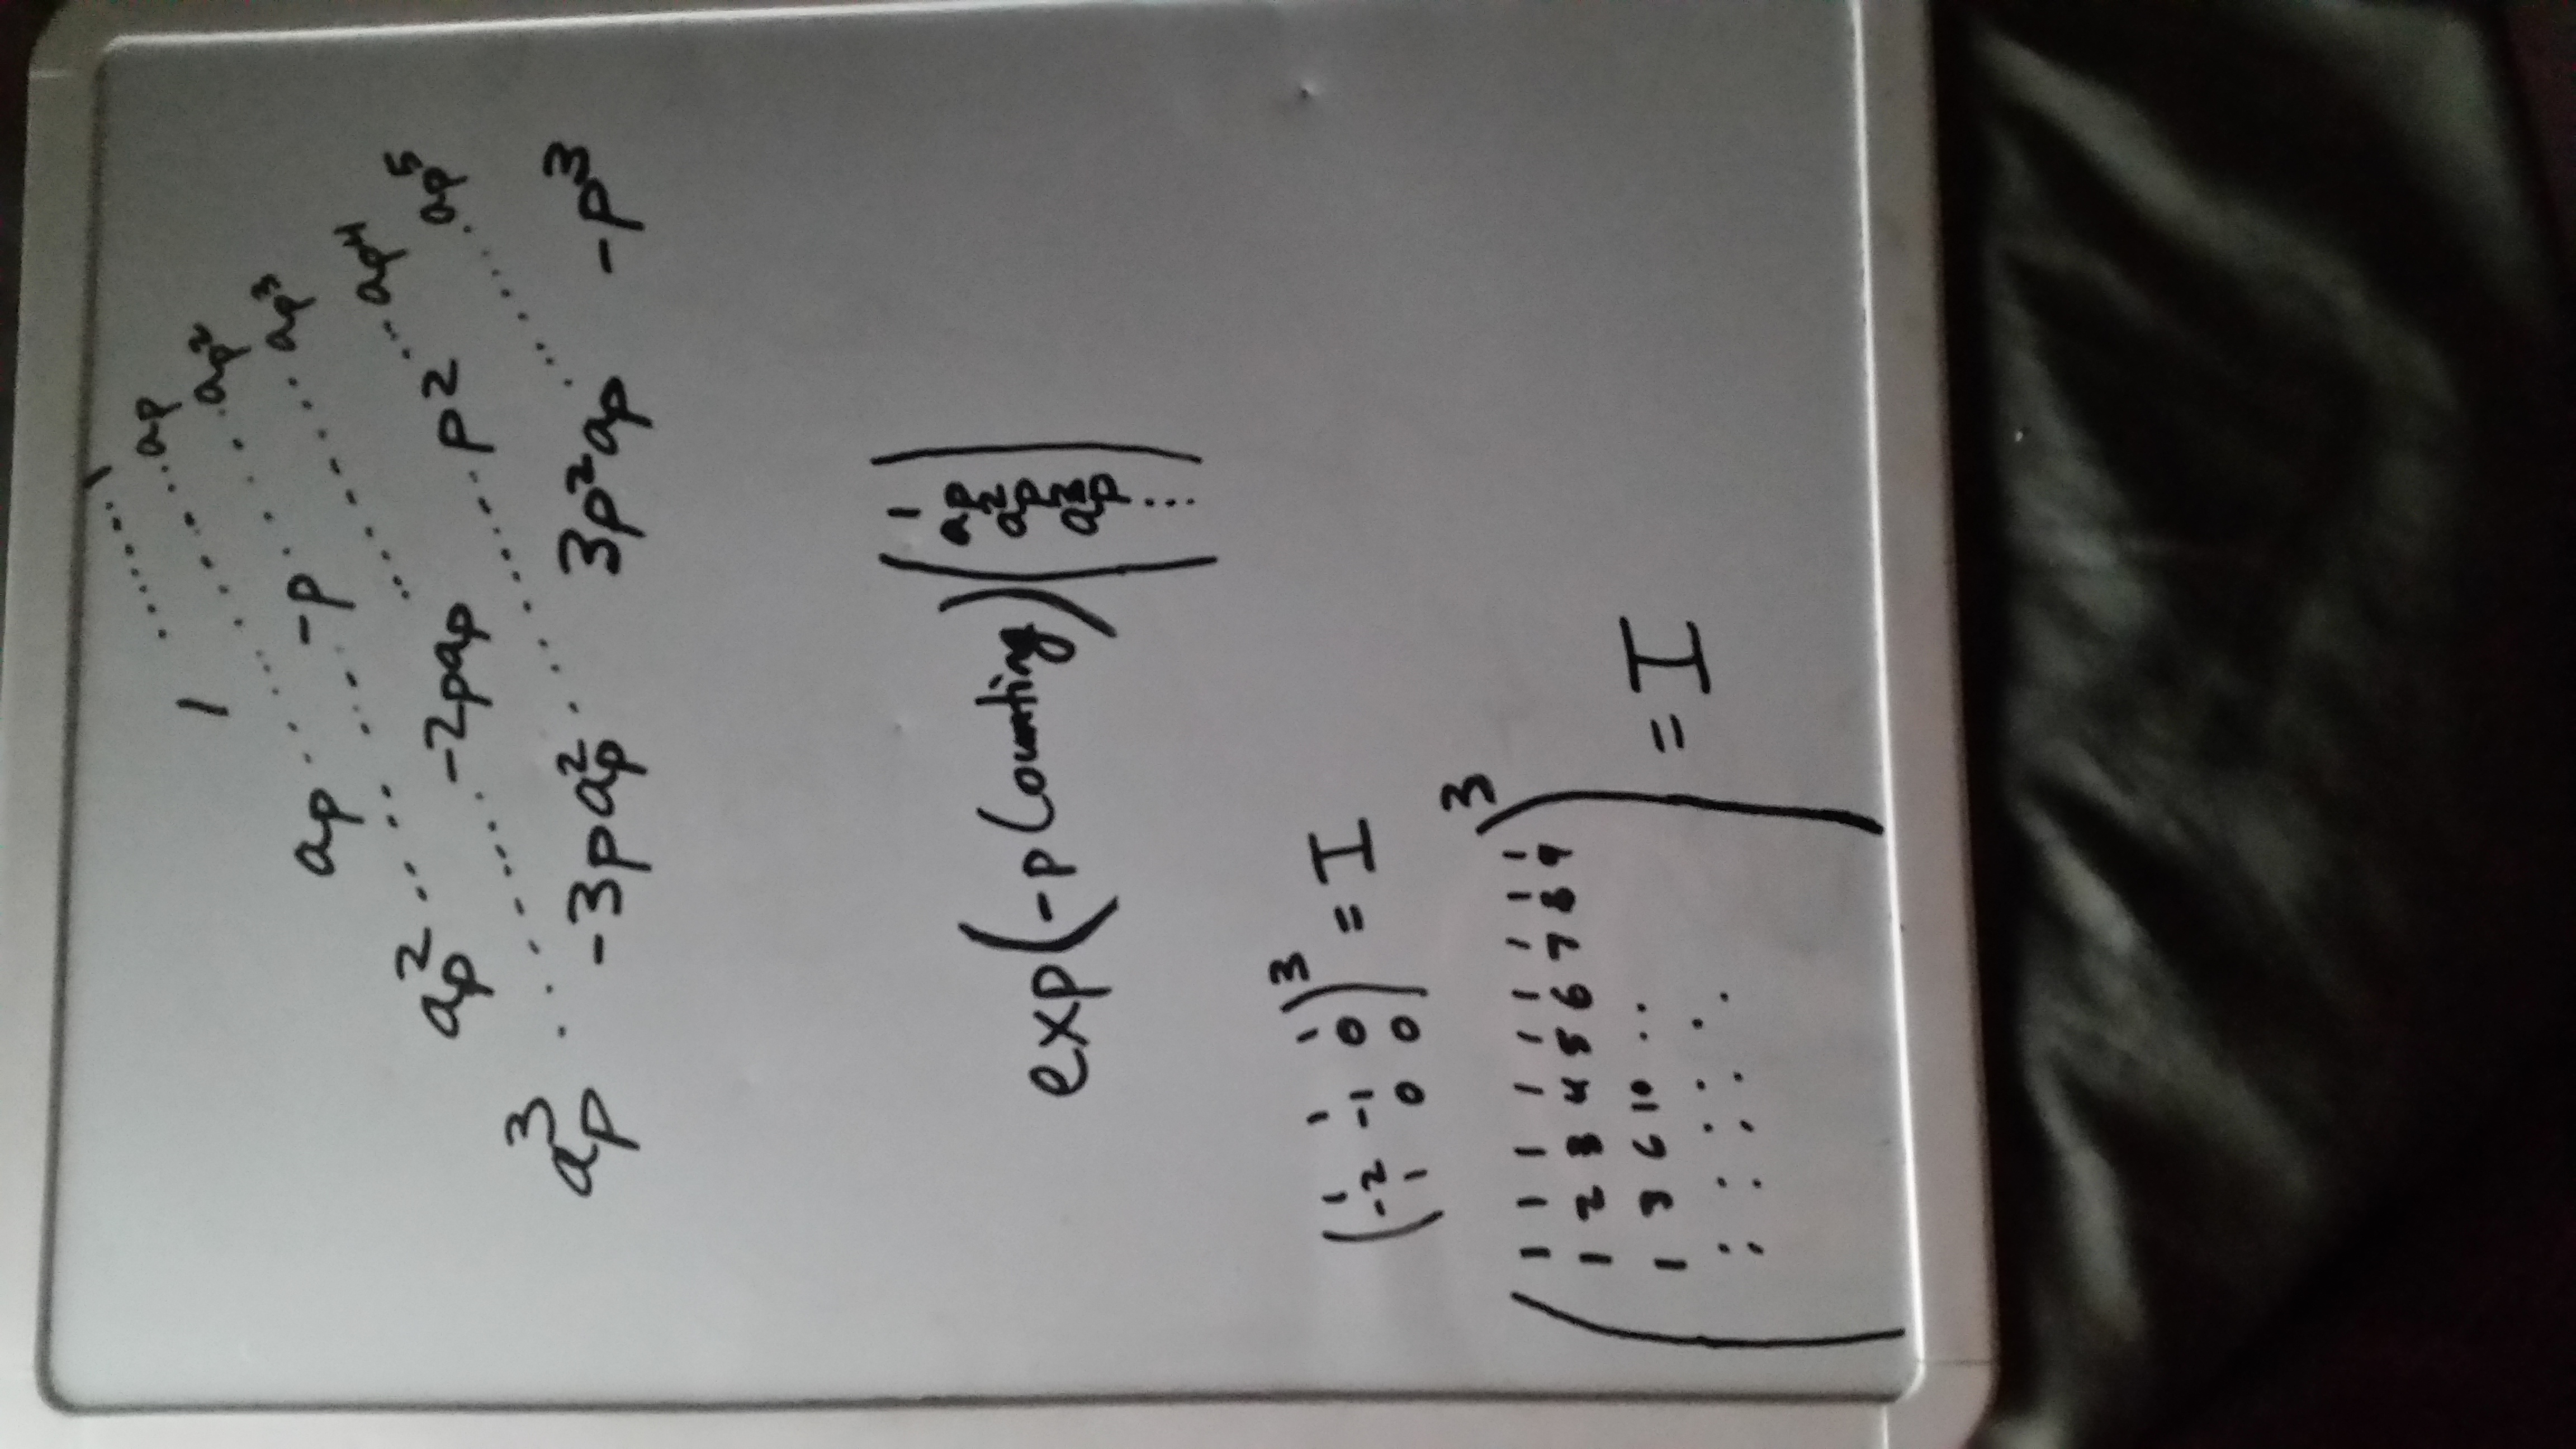 1
1 a_p
a_p^2
a_p -p a_{p^3}
a_{p^4}
a_p^2 -2pa_p p^2 a_{p^5}
a_p^3 -3pa_p^2 3p^2a_p -p^3
exp(-p Counting) (1
a_p
a_p^2
a_p^3
⋮)
(1 1 1
-2 -1 0
1 0 0)^3 = I
(1 1 1 1 1 1 1 1 1
1 2 3 4 5 6 7 8 9
1 3 6 10 ..
: : : : :)^3 = I